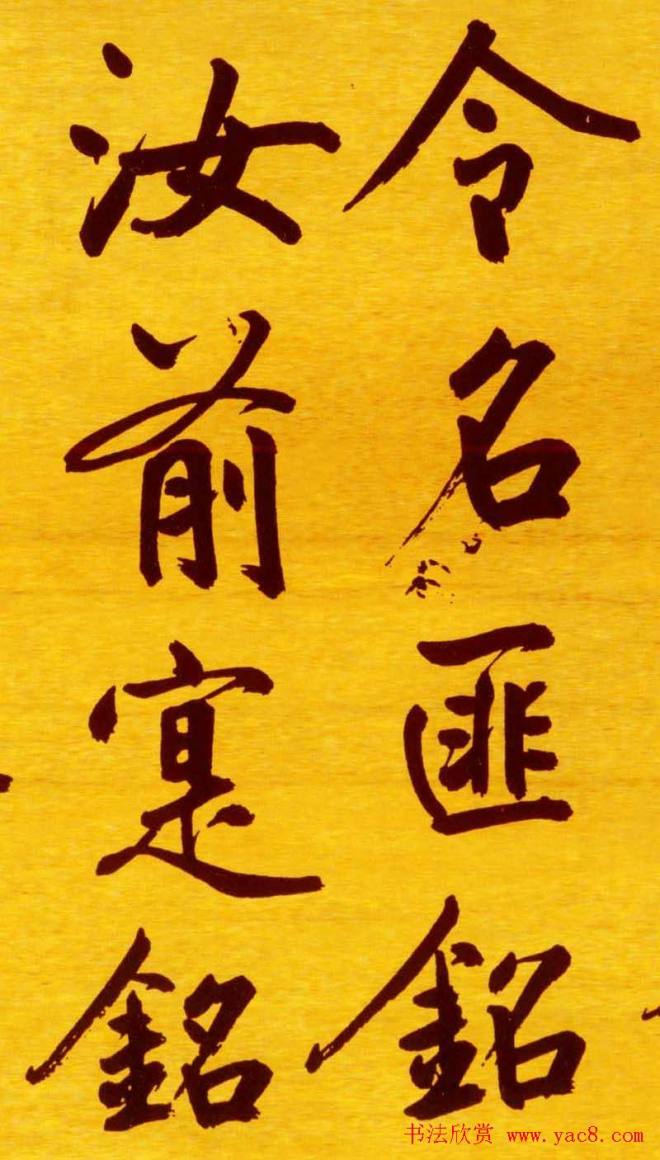 令名匪銘
汝前寔銘
书法欣赏 www.yac8.com